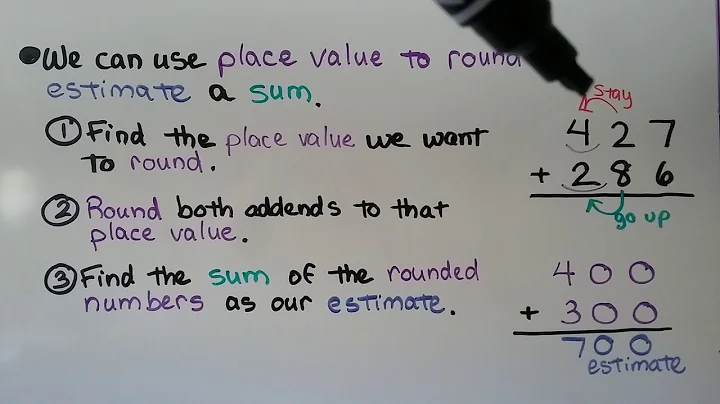 We can use place value to round
estimate a sum.
① Find the place value we want
to round.
② Round both addends to that
place value.
③ Find the sum of the rounded
numbers as our estimate.
stay
427
+ 286
go up
400
+ 300
700
estimate